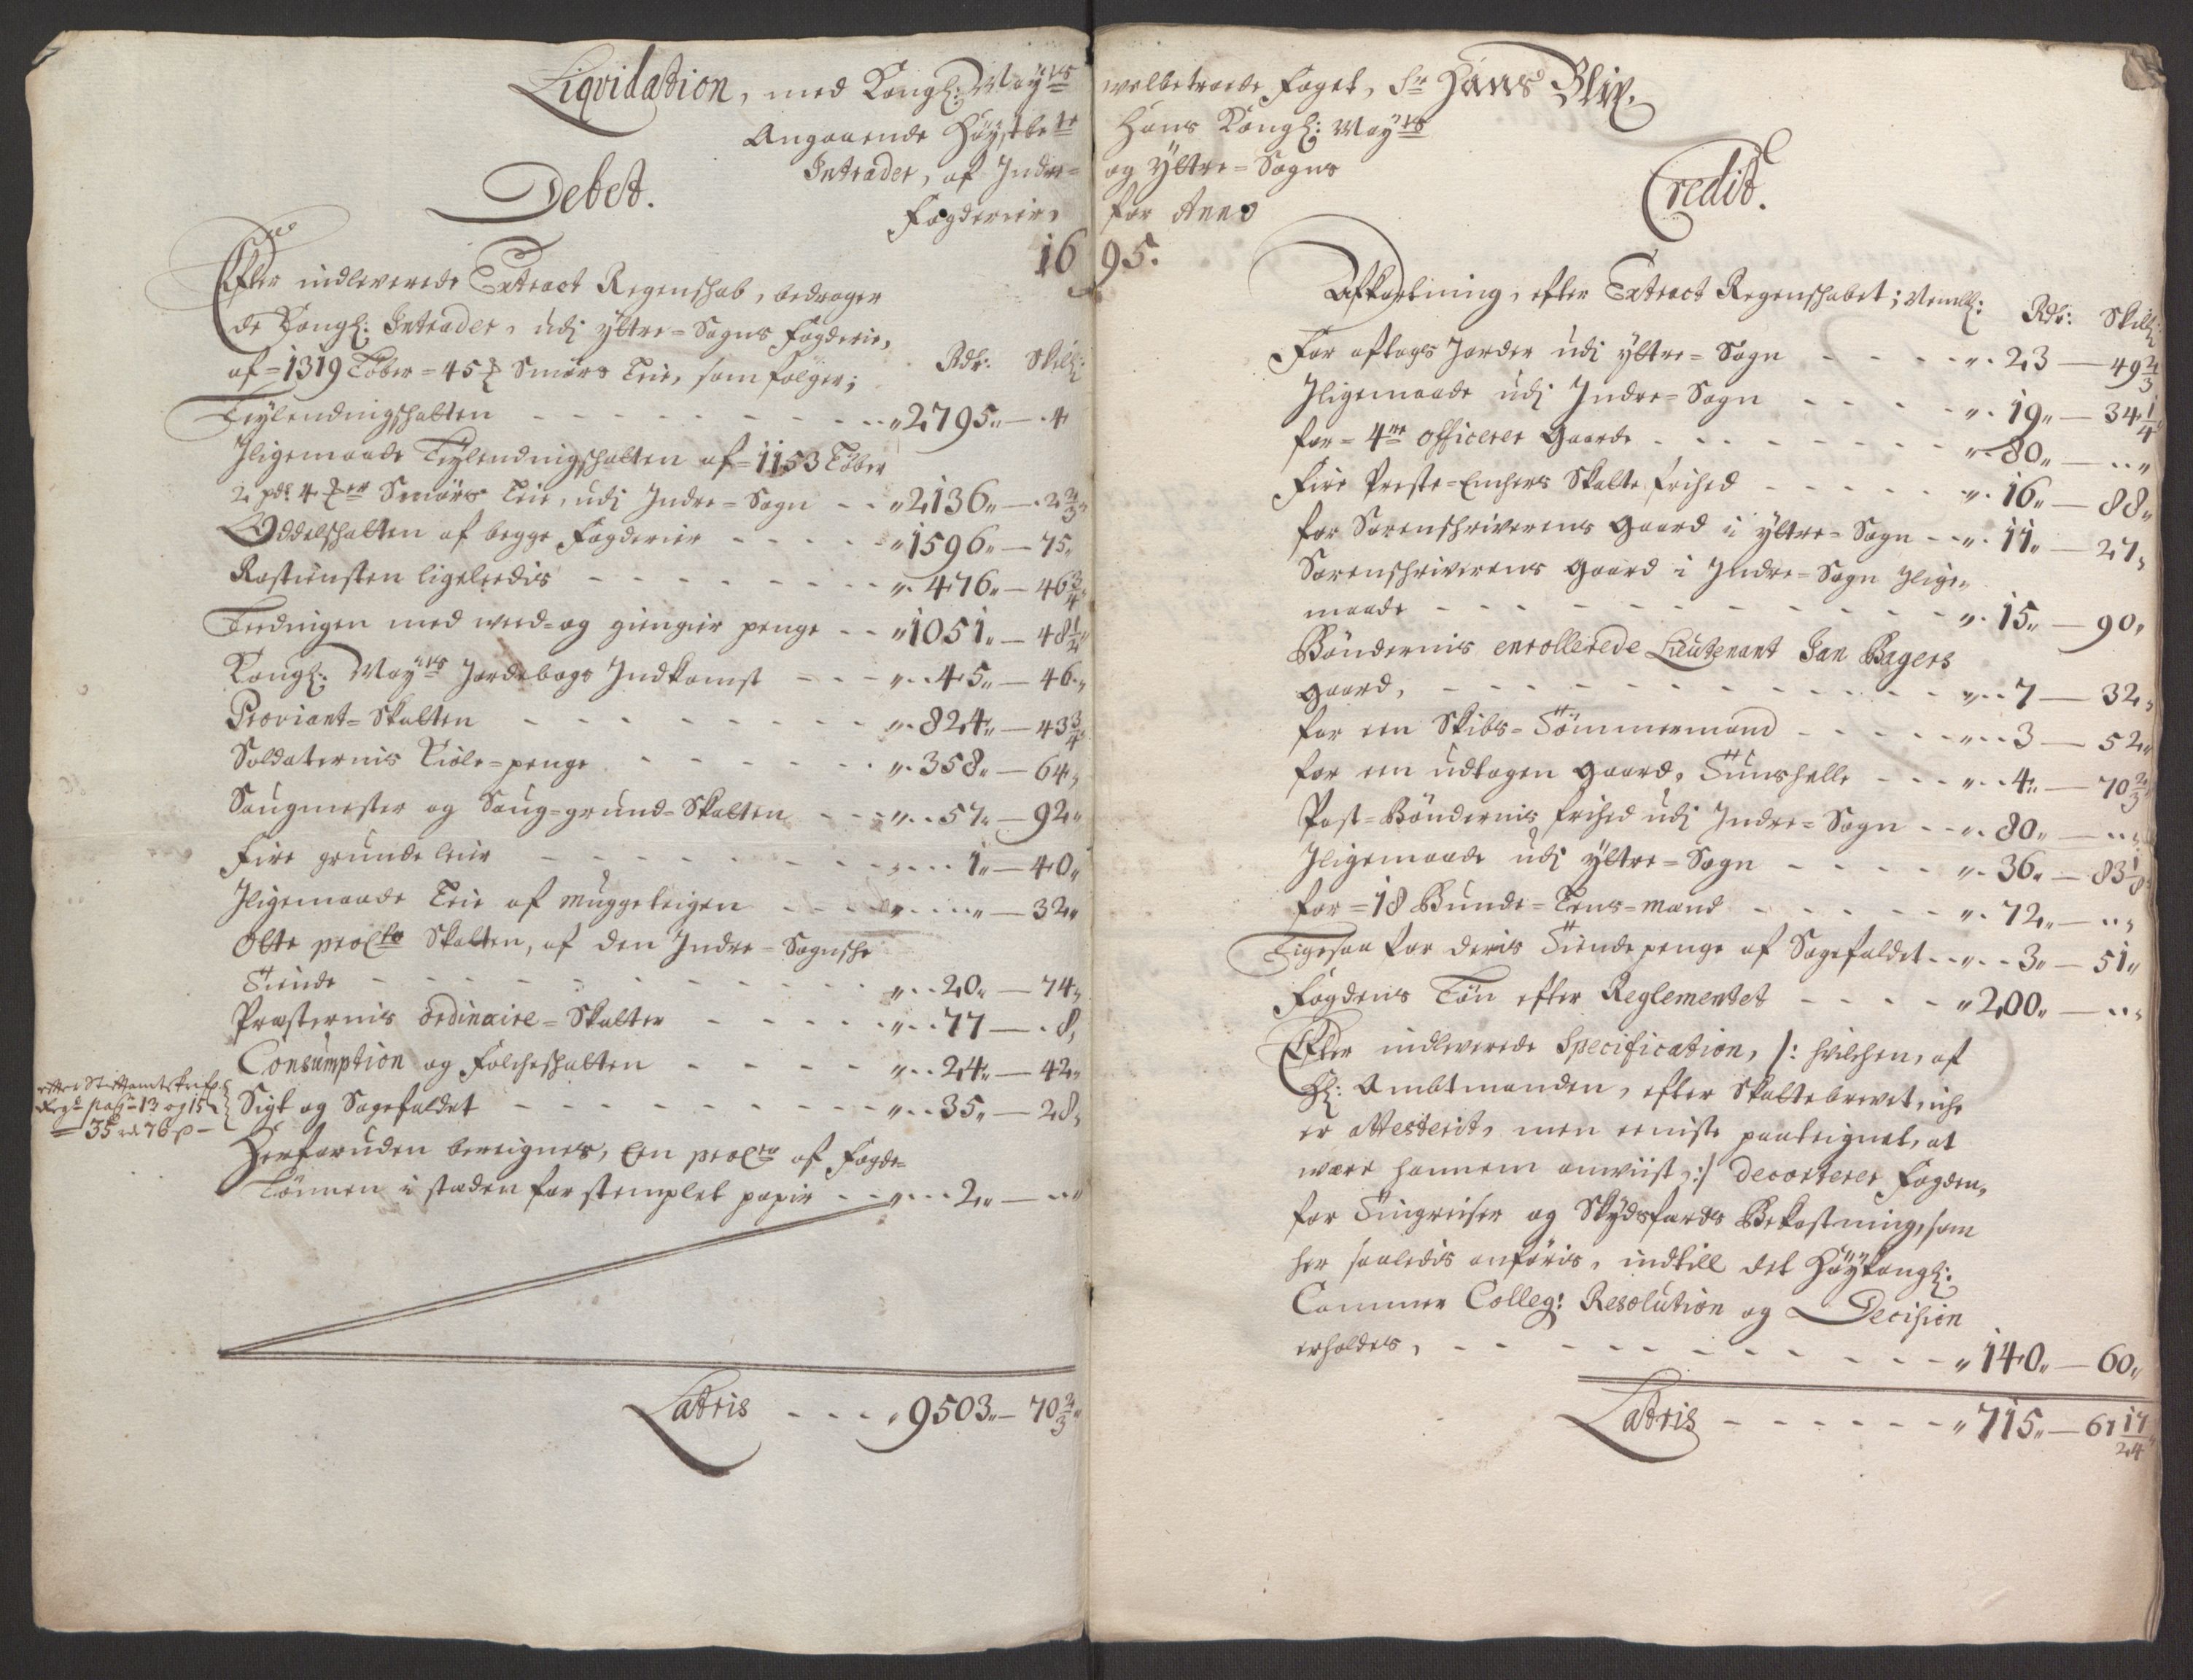 Liqvidation, med Kongl: May:ts
Angaaende Høystbe:te
Intrader, af Indre=
Fogderier,
16
Debet.
Efter indleverede Extract Regenskab, bedrager
de Kongl: Intrader, udi Yttre=Sogns Fogderie,
af=1319 Løber=45 ℔ Smørs Leie, som følger; Rdr: Skill:
Leylendingskatten - - - „2795„—„4
Iligemaade Leylendingskatten af=1153 Løber
2 pd: 4 ℔er Smørs Leie, udi Indre=Sogn - - „2136„—„2 2/3„
Oddelskatten af begge Fogderier - - - „1596„—75„
Rostienesten ligeledis - - - „476„—46 3/4„
Leedingen med weed- og giengier penge - - „1051„—48 1/2„
Kongl: May:ts Jordebogs Indkomst - - - „45„—46„
Proviant=Skatten - - - „824„—43 3/4„
Soldaternis Kiole=penge - - - „358„—64„
Saugmester og Saug=grund=Skatten - - - „57„—92„
Fire grundeleie - - - „1„—40„
Iligemaade Leie af Muggeteigen - - - „„—32„
Otte procto Skatten, af den Indre=Sognske
Tiende - - - „20„—74„
Præsternis ordinaire=Skatter - - - „77—„8„
Consumption og Folcheskatten - - - „24„—42„
efter Stiftamtskrif:s
Regs: pag: 13 og 15
= 35 rd 76 s —
Sigt og Sagefaldet - - - „35„—28„
Herforuden bereignes, een procto af Fogde=
Lønnen i steden for stemplet papir - - „2„—„„
Latris - - - „9503„—70 2/3„
welbetroede Foget, Sr Hans Blix,
Hans Kongl: May:ts
og Yttre=Sogns
for Anno
95.
Credit.
Afkortning, efter Extract Regenskabet; Nemll: Rdr: Skill:
For aflags Jorder udi Yttre=Sogn - - - „23—49 2/3
Iligemaade udi Indre=Sogn - - - „19„—34 1/4„
for=4re officerer Gaarde - - - „80„—„„
Fire Preste=Enckers Skatte frihed - - - „16„—88„
for Sorenskriverens Gaard i Yttre=Sogn - - „11„—27„
Sorenskriverens Gaard i Indre=Sogn Ilige„
maade - - - „15„—90„
Bøndernis enrollerede Lieutenant Jan Bagers
Gaard, - - - „7—32„
for een Skibs=Tømmermand - - - „3—52„
for een udtagen Gaard, Tunshelle - - - „4„—70 2/3„
Post=Bøndernis frihed udi Indre=Sogn - - „80„—„„
Iligemaade udi Yttre=Sogn - - - „36„—83 1/8„
for=18 Bunde=Lens=mænd - - - „72„—„„
Ligesaa for deris Tiendepenge af Sagefaldet - - „3„—51„
Fogdens Løn efter Reglementet - - - „200„—„„
Efter indleverede Specification, /: hvilchen, af
Hr: Ambtmanden, efter Skattebrevet, iche
er attesterit, men eeniste paateignet, at
være hannem anviist,:/ decorterer Fogden,
for Tingreiser og Skydsfærds Bekostning, som
her saaledis anføris, indtill det Høykongl:
Cammer Colleg: Resolution og Decision
erholdes, - - - „140„—60„
Latris - - - „715„—61 17/24„